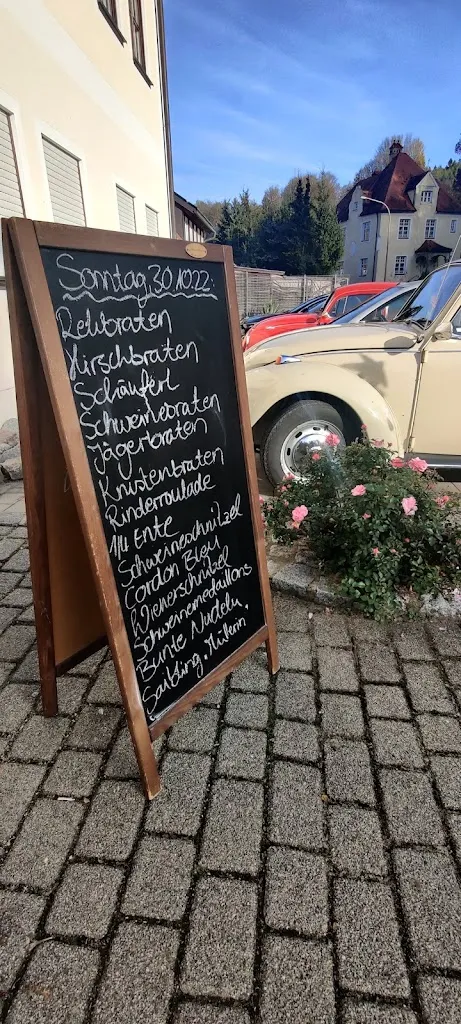 Sonntag, 30.10.22:
Rehbraten
Hirschbraten
Schäuferl
Schweinebraten
Jägerbraten
Krustenbraten
Rinderroulade
1/4 Ente
Schweineschnitzel
Cordon Bleu
Wienerschnitzel
Schweinemedaillons
Bunte Nudeln
Saibling, Müllerin